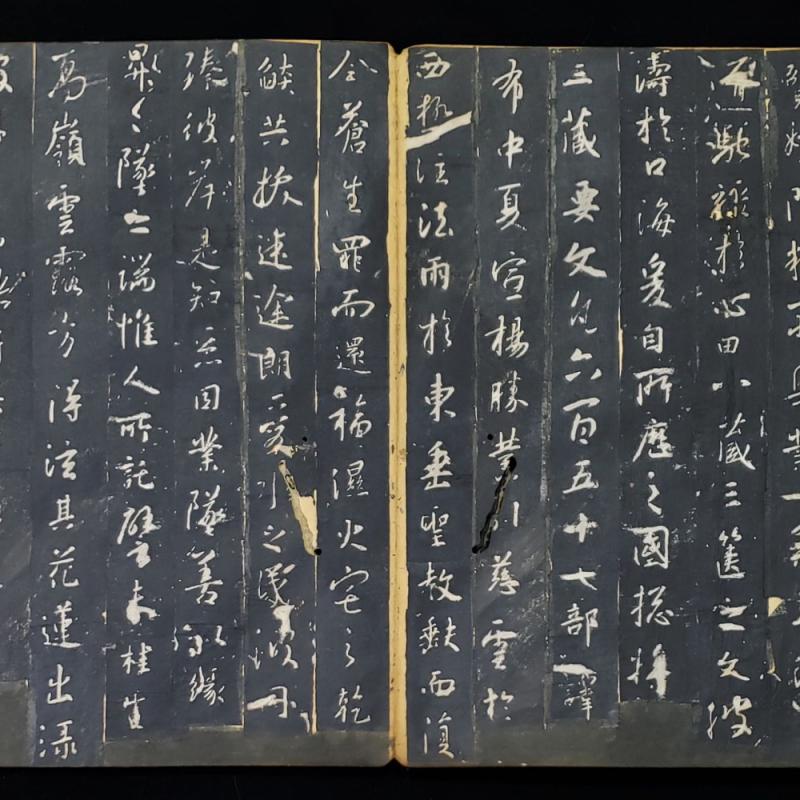 門精窮奧業一乘
道馳驟於心田八藏三篋之文波
濤於口海爰自所歷之國揔將
三藏要文凡六百五十七部譯
布中夏宣楊勝業引慈雲於
西極注法雨於東垂聖教缺而復
全蒼生罪而還福濕火宅之乾
焰共拔迷途朗愛水之昏波同
臻彼岸是知惡因業墜善以緣
昇々墜之端惟人所託譬夫桂生
高嶺雲露方得泫其花蓮出淥